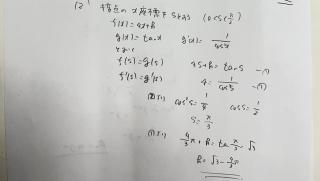 (2) 接点の x座標を sとおく (0<s<π/2)
f(x)=4x+k
g(x)=tanx g'(x)=1/cos²x
とおくと
f(s)=g(s) 4s+k=tans —①
f'(s)=g'(s) 4=1/cos²s —②
②より cos²s=1/4 coss=1/2
s=π/3
①より 4/3π+k=tan π/3=√3
k=√3-4/3π